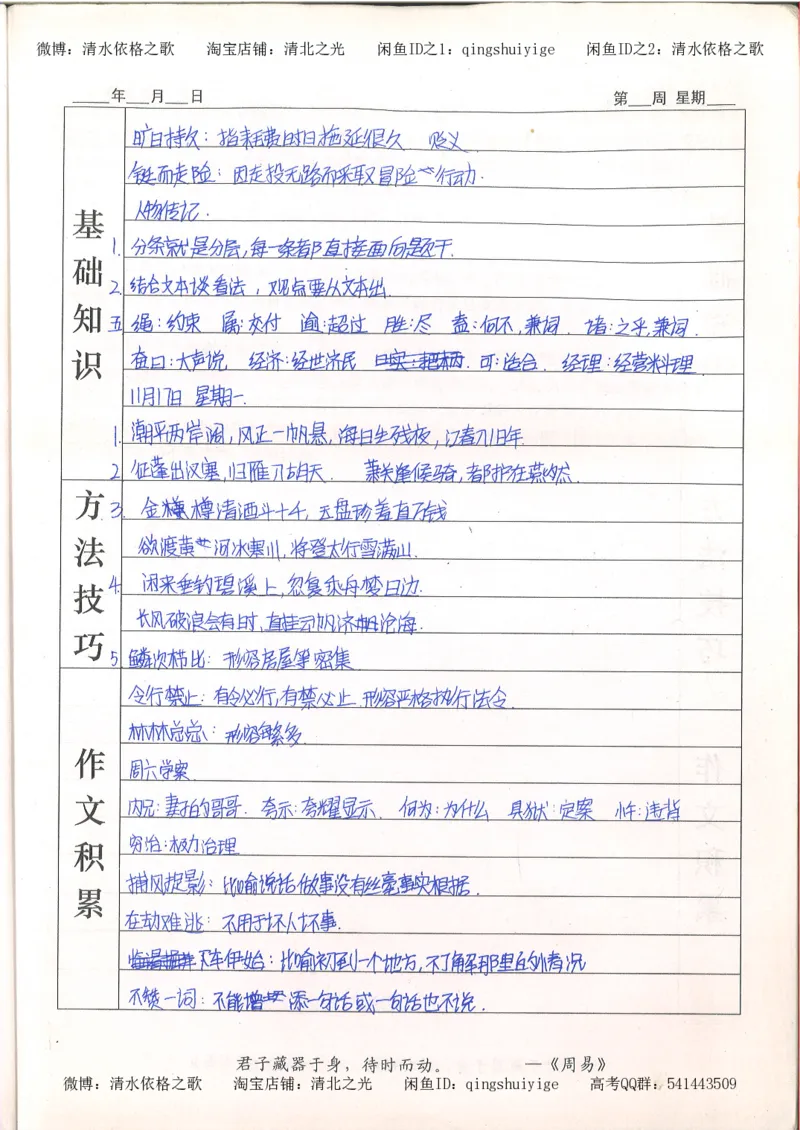 微博：清水依格之歌 淘宝店铺：清北之光 闲鱼ID之1：qingshuiyige 闲鱼ID之2：清水依格之歌
年 月 日 第 周 星期
基础知识
旷日持久：指耗费时日拖延很久 贬义
铤而走险：因走投无路而采取冒险行动.
人物传记.
1. 分条就是分层,每一条都直接面向题干.
2. 结合文本谈看法，观点要从文本出.
五 绳:约束 属:交付 逾:超过 胜:尽 盍:何不,兼词. 诸:之乎,兼词.
奋曰:大声说 经济:经世济民 可:适合. 经理:经营料理.
11月17日 星期一.
1. 潮平两岸阔,风正一帆悬,海日生残夜,江春入旧年.
2. 征蓬出汉塞,归雁入胡天. 萧关逢候骑,都护在燕然.
方法技巧
3. 金樽清酒斗十千,玉盘珍羞直万钱
欲渡黄河冰塞川,将登太行雪满山.
4. 闲来垂钓碧溪上,忽复乘舟梦日边.
长风破浪会有时,直挂云帆济沧海.
5. 鳞次栉比：形容房屋等密集
作文积累
令行禁止：有令必行,有禁必止.形容严格执行法令.
林林总总：形容繁多.
周六学案
内兄:妻子的哥哥. 夸示:夸耀显示. 何为:为什么 具狱:定案 忤:违背
穷治:极力治理
捕风捉影：比喻说话做事没有丝毫事实根据.
在劫难逃：不用于坏人坏事.
下车伊始：比喻初到一个地方,不了解那里的情况
不赞一词：不能添一句话或一句话也不说.
君子藏器于身，待时而动。 —《周易》
微博：清水依格之歌 淘宝店铺：清北之光 闲鱼ID：qingshuiyige 高考QQ群：541443509